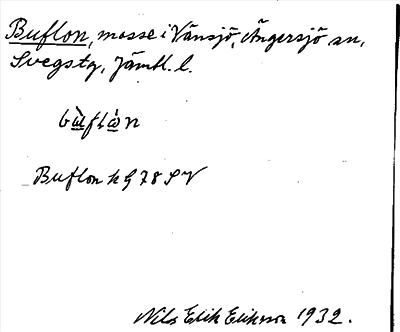 Buflon, mosse i Vänsjö, Ängersjö sn,
Svegs tg, Jämtl. l.
bùflòn
Buflon k G 78 SV
Nils Erik Eriksson 1932.